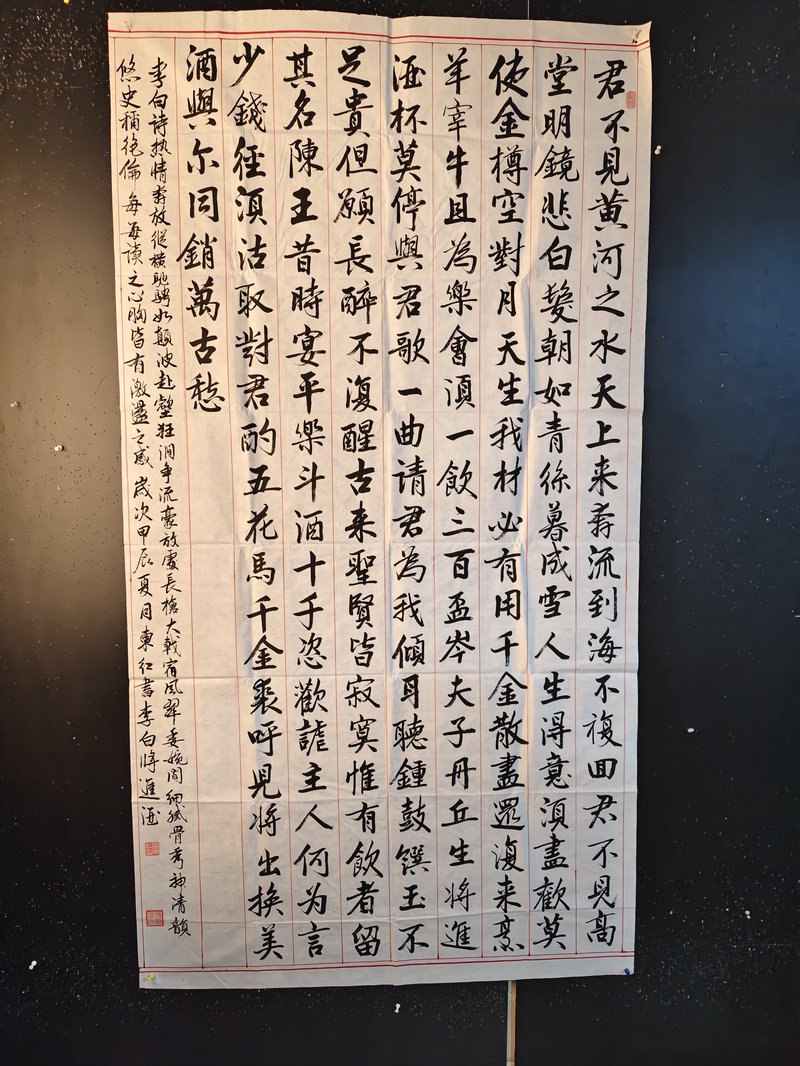 君不見黄河之水天上来奔流到海不複回君不見高
堂明鏡悲白髮朝如青絲暮成雪人生得意須盡歡莫
使金樽空對月天生我材必有用千金散盡還復来烹
羊宰牛且為樂會須一飲三百盃岑夫子丹丘生將進
酒杯莫停與君歌一曲请君為我傾耳聽鍾鼓饌玉不
足貴但願長醉不復醒古来聖賢皆寂寞惟有飲者留
其名陳王昔時宴平樂斗酒十千恣歡謔主人何为言
少錢徑須沽取對君酌五花馬千金裘呼兒將出換美
酒與尔同銷萬古愁
李白诗热情奔放縱横馳騁如顛波赴壑狂澜争流豪放處長槍大戟委婉間細膩骨秀神清韻
悠史稱绝倫每每读之心胸皆有激盪之感歲次甲辰夏月東红書李白將進酒